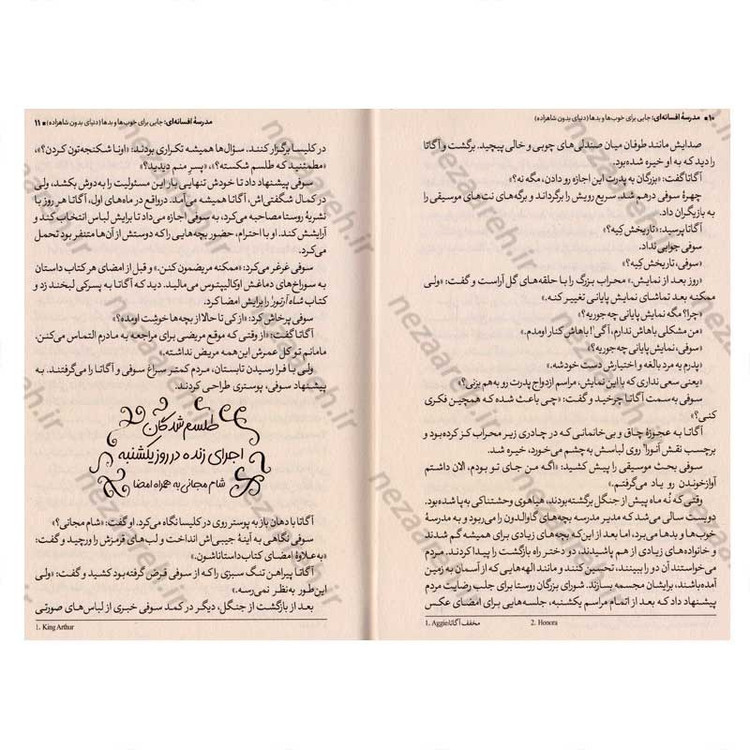 ۱۰ ■ مدرسهٔ افسانه‌ای: جایی برای خوب‌ها و بدها (دنیای بدون شاهزاده)
صدایش مانند طوفان میان صندلی‌های چوبی و خالی پیچید. برگشت و آگاتا
را دید که به او خیره شده بود.
آگاتا گفت: «بزرگان به پدرت این اجازه رو دادن، مگه نه؟»
چهرهٔ سوفی درهم شد. سریع رویش را برگرداند و برگه‌های نت‌های موسیقی را
به بازیگران داد.
آگاتا پرسید: «تاریخش کِیه؟»
سوفی جوابی نداد.
«سوفی، تاریخش کِیه؟»
«روز بعد از نمایش.» محراب بزرگ را با حلقه‌های گل آراست و گفت: «ولی
ممکنه بعد تماشای نمایش پایانی تغییر کنه.»
«چرا؟ مگه نمایش پایانی چه‌جوریه؟»
«من مشکلی باهاش ندارم، آگی!¹ باهاش کنار اومدم.»
«سوفی، نمایش پایانی چه‌جوریه؟»
«پدرم یه مرد بالغه و اختیارش دست خودشه.»
«یعنی سعی نداری که با این نمایش، مراسم ازدواج پدرت رو به‌هم بزنی؟»
سوفی به‌سمت آگاتا چرخید و گفت: «چی باعث شده که همچین فکری
کنی؟»
آگاتا به عجوزهٔ چاق و بی‌خانمانی که در چادری زیر محراب کز کرده بود و
برچسب نقش آنورا² روی لباسش به‌چشم می‌خورد، خیره شد.
سوفی بحث موسیقی را پیش کشید: «اگه من جای تو بودم، الان داشتم
آوازخوندن رو یاد می‌گرفتم.»
وقتی که نُه ماه پیش از جنگل برگشته بودند، هیاهوی وحشتناکی به‌پا شده بود.
دویست سالی می‌شد که مدیر مدرسه بچه‌های گاوالدون را می‌ربود و به مدرسهٔ
خوب‌ها و بدها می‌برد، اما بعد از این‌که بچه‌های زیادی برای همیشه گم شدند
و خانواده‌های زیادی از هم پاشیدند، دو دختر راه بازگشت را پیدا کردند. مردم
می‌خواستند آن دو را ببینند، تحسین کنند و مانند الهه‌هایی که از آسمان به زمین
آمده باشند، برایشان مجسمه بسازند. شورای بزرگان روستا برای جلب رضایت مردم
پیشنهاد داد که بعد از اتمام مراسم یکشنبه، جلسه‌هایی برای امضای عکس
1. Aggie مخفف آگاتا
2. Honora
مدرسهٔ افسانه‌ای: جایی برای خوب‌ها و بدها (دنیای بدون شاهزاده) ■ ۱۱
در کلیسا برگزار کنند. سؤال‌ها همیشه تکراری بودند: «اونا شکنجه‌تون کردن؟»،
«مطمئنید که طلسم شکسته؟»، «پسرِ منم دیدید؟»
سوفی پیشنهاد داد تا خودش تنهایی بار این مسئولیت را به‌دوش بکشد، ولی
در کمال شگفتی‌اش، آگاتا همیشه می‌آمد. درواقع در ماه‌های اول، آگاتا هر روز با
نشریهٔ روستا مصاحبه می‌کرد، به سوفی اجازه می‌داد تا برایش لباس انتخاب کند و
آرایشش کند. او با احترام، حضور بچه‌هایی را که دوستش از آن‌ها متنفر بود تحمل
می‌کرد.
سوفی غرغر می‌کرد: «ممکنه مریضمون کنن.» و قبل از امضای هر کتاب داستان
به سوراخ‌های دماغش اوکالیپتوس می‌مالید. دید که آگاتا به پسرکی لبخند زد و
کتاب شاه آرتور¹ را برایش امضا کرد.
سوفی پرخاش کرد: «از کی تا حالا از بچه‌ها خوشِت اومده؟»
آگاتا گفت: «از وقتی که موقع مریضی برای مراجعه به مادرم التماس می‌کنن.
مامانم تو کل عمرش این همه مریض نداشته.»
ولی با فرا رسیدن تابستان، مردم کمتر سراغ سوفی و آگاتا را می‌گرفتند. به
پیشنهاد سوفی، پوستری طراحی کردند.
طلسم‌شدگان
اجرای زنده در روز یکشنبه
شام مجانی به همراه امضا
آگاتا با دهان باز به پوستر روی در کلیسا نگاه می‌کرد. او گفت: «شام مجانی؟»
سوفی نگاهی به آینهٔ جیبی‌اش انداخت و لب‌های قرمزش را ورچید و گفت:
«به‌علاوهٔ امضای کتاب داستاناشون.»
آگاتا پیراهن تنگ سبزی را که از سوفی قرض گرفته بود کشید و گفت: «ولی
این‌طور به‌نظر نمی‌رسه.»
بعد از بازگشت از جنگل، دیگر در کمد سوفی خبری از لباس‌های صورتی
1. King Arthur
nezaareh.ir